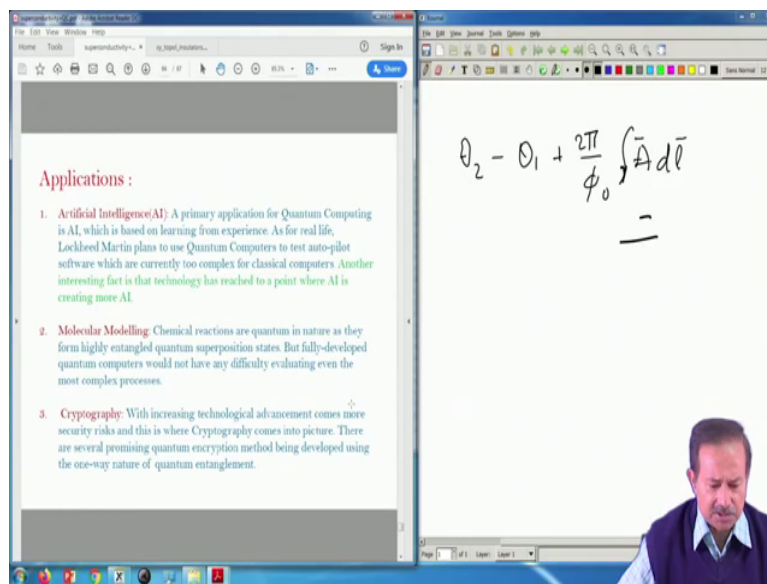 superconductivity+QC.pdf - Adobe Acrobat Reader DC
File Edit View Window Help
Home Tools superconductivity+... × sy_topol_insulators... Sign In
84 / 87 Share
Applications :
1. Artificial Intelligence(AI): A primary application for Quantum Computing
is AI, which is based on learning from experience. As for real life,
Lockheed Martin plans to use Quantum Computers to test auto-pilot
software which are currently too complex for classical computers. Another
interesting fact is that technology has reached to a point where AI is
creating more AI.
2. Molecular Modelling: Chemical reactions are quantum in nature as they
form highly entangled quantum superposition states. But fully-developed
quantum computers would not have any difficulty evaluating even the
most complex processes.
3. Cryptography: With increasing technological advancement comes more
security risks and this is where Cryptography comes into picture. There
are several promising quantum encryption method being developed using
the one-way nature of quantum entanglement.
Xournal
File Edit View Journal Tools Options Help
Sans Normal 12
θ₂ - θ₁ + 2π/ϕ₀ ∫ A̅ dl̅
Page 1 of 1 Layer: Layer 1